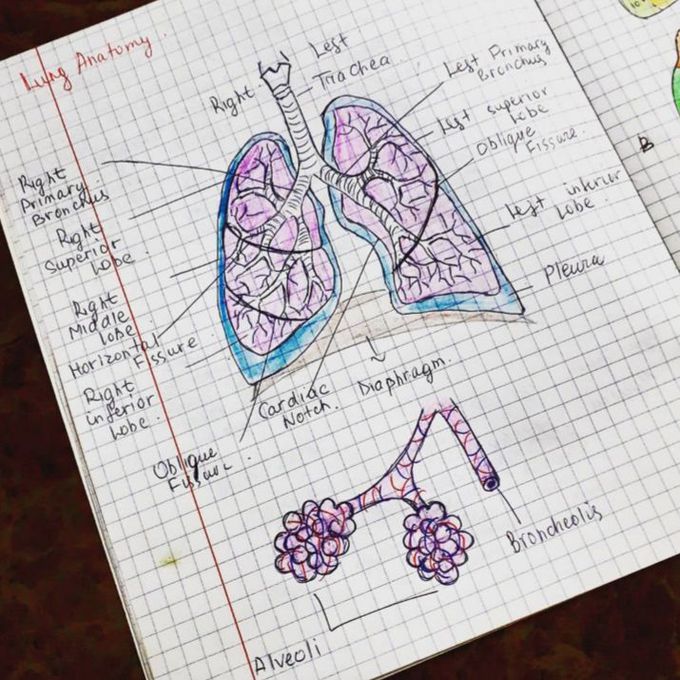 Lung Anatomy.
Right
Lest
Trachea
Lest Primary
Bronchus
Lest superior
Lobe
Oblique
Fissure.
Lest inferior
Lobe.
Pleura
Right
Primary
Bronchus
Right
Superior
Lobe.
Right
Middle
Lobe
Horizontal
Fissure
Right
inferior
Lobe.
Oblique
Fissure.
Cardiac
Notch.
Diaphragm.
Broncheolis
Alveoli
B